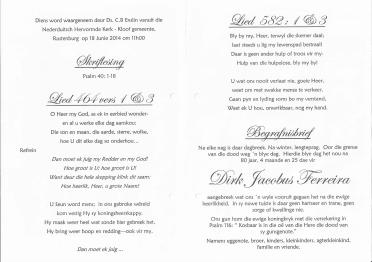 Diens word waargeneem deur Ds. C.B Enslin vanuit die
Nederduitsch Hervormde Kerk - Kloof gemeente,
Rustenburg op 18 Junie 2014 om 11h00
Skriflesing
Psalm 40: 1-18
Lied 464 vers 1 & 3
O Heer my God, as ek in eerbied wonder-
en al u werke elke dag aanskou:
Die son en maan, die aarde, sterre, wolke,
hoe U dit elke dag so onderhou...
Refrein
Dan moet ek juig my Redder en my God!
Hoe groot is U! hoe groot is U!
Want deur die hele skepping klink dit saam:
Hoe heerlik, Heer, u grote Naam!
U Seun word mens: in ons gebroke wêreld
kom vestig Hy sy koningsheerskappy.
Hy maak weer heel wat sonde hier gebreek het.
Hy bring weer hoop en redding—ook vir my.
Dan moet ek juig ...
Lied 582 : 1 & 3
Bly by my, Heer, terwyl die skemer daal;
laat steeds u lig my lewenspad bestraal!
Daar is geen ander hulp of troos vir my.
Hulp van die hulpelose, bly my by!
U wat ons nooit verlaat nie, goeie Heer,
weet om met swakke mense te verkeer.
Gaan pyn en lyding soms bo my verstand,
Weet ek U hou, onwrikbaar, nog my hand.
Begrafnisbrief
Na elke nag is daar dagbreek. Na winter, lengtepag. Oor die grense
van die dood wag 'n blye dag. Hierdie blye dag het nou na
80 jaar, 4 maande en 25 dae vir
Dirk Jacobus Ferreira
aangebreek wat ons 'n wyle vooruit gegaan het na die ewige
heerlikheid. In sy nuwe tuiste is daar geen hartseer en trane, geen
sorge of kwellinge nie.
Ons gun hom die ewige koninkryk met die versekering in
Psalm 116: " Kosbaar is in die oë van die Here die dood van
sy gunsgenote."
Namens eggenote, broer, kinders, kleinkinders, agterkleinkind,
familie en vriende.